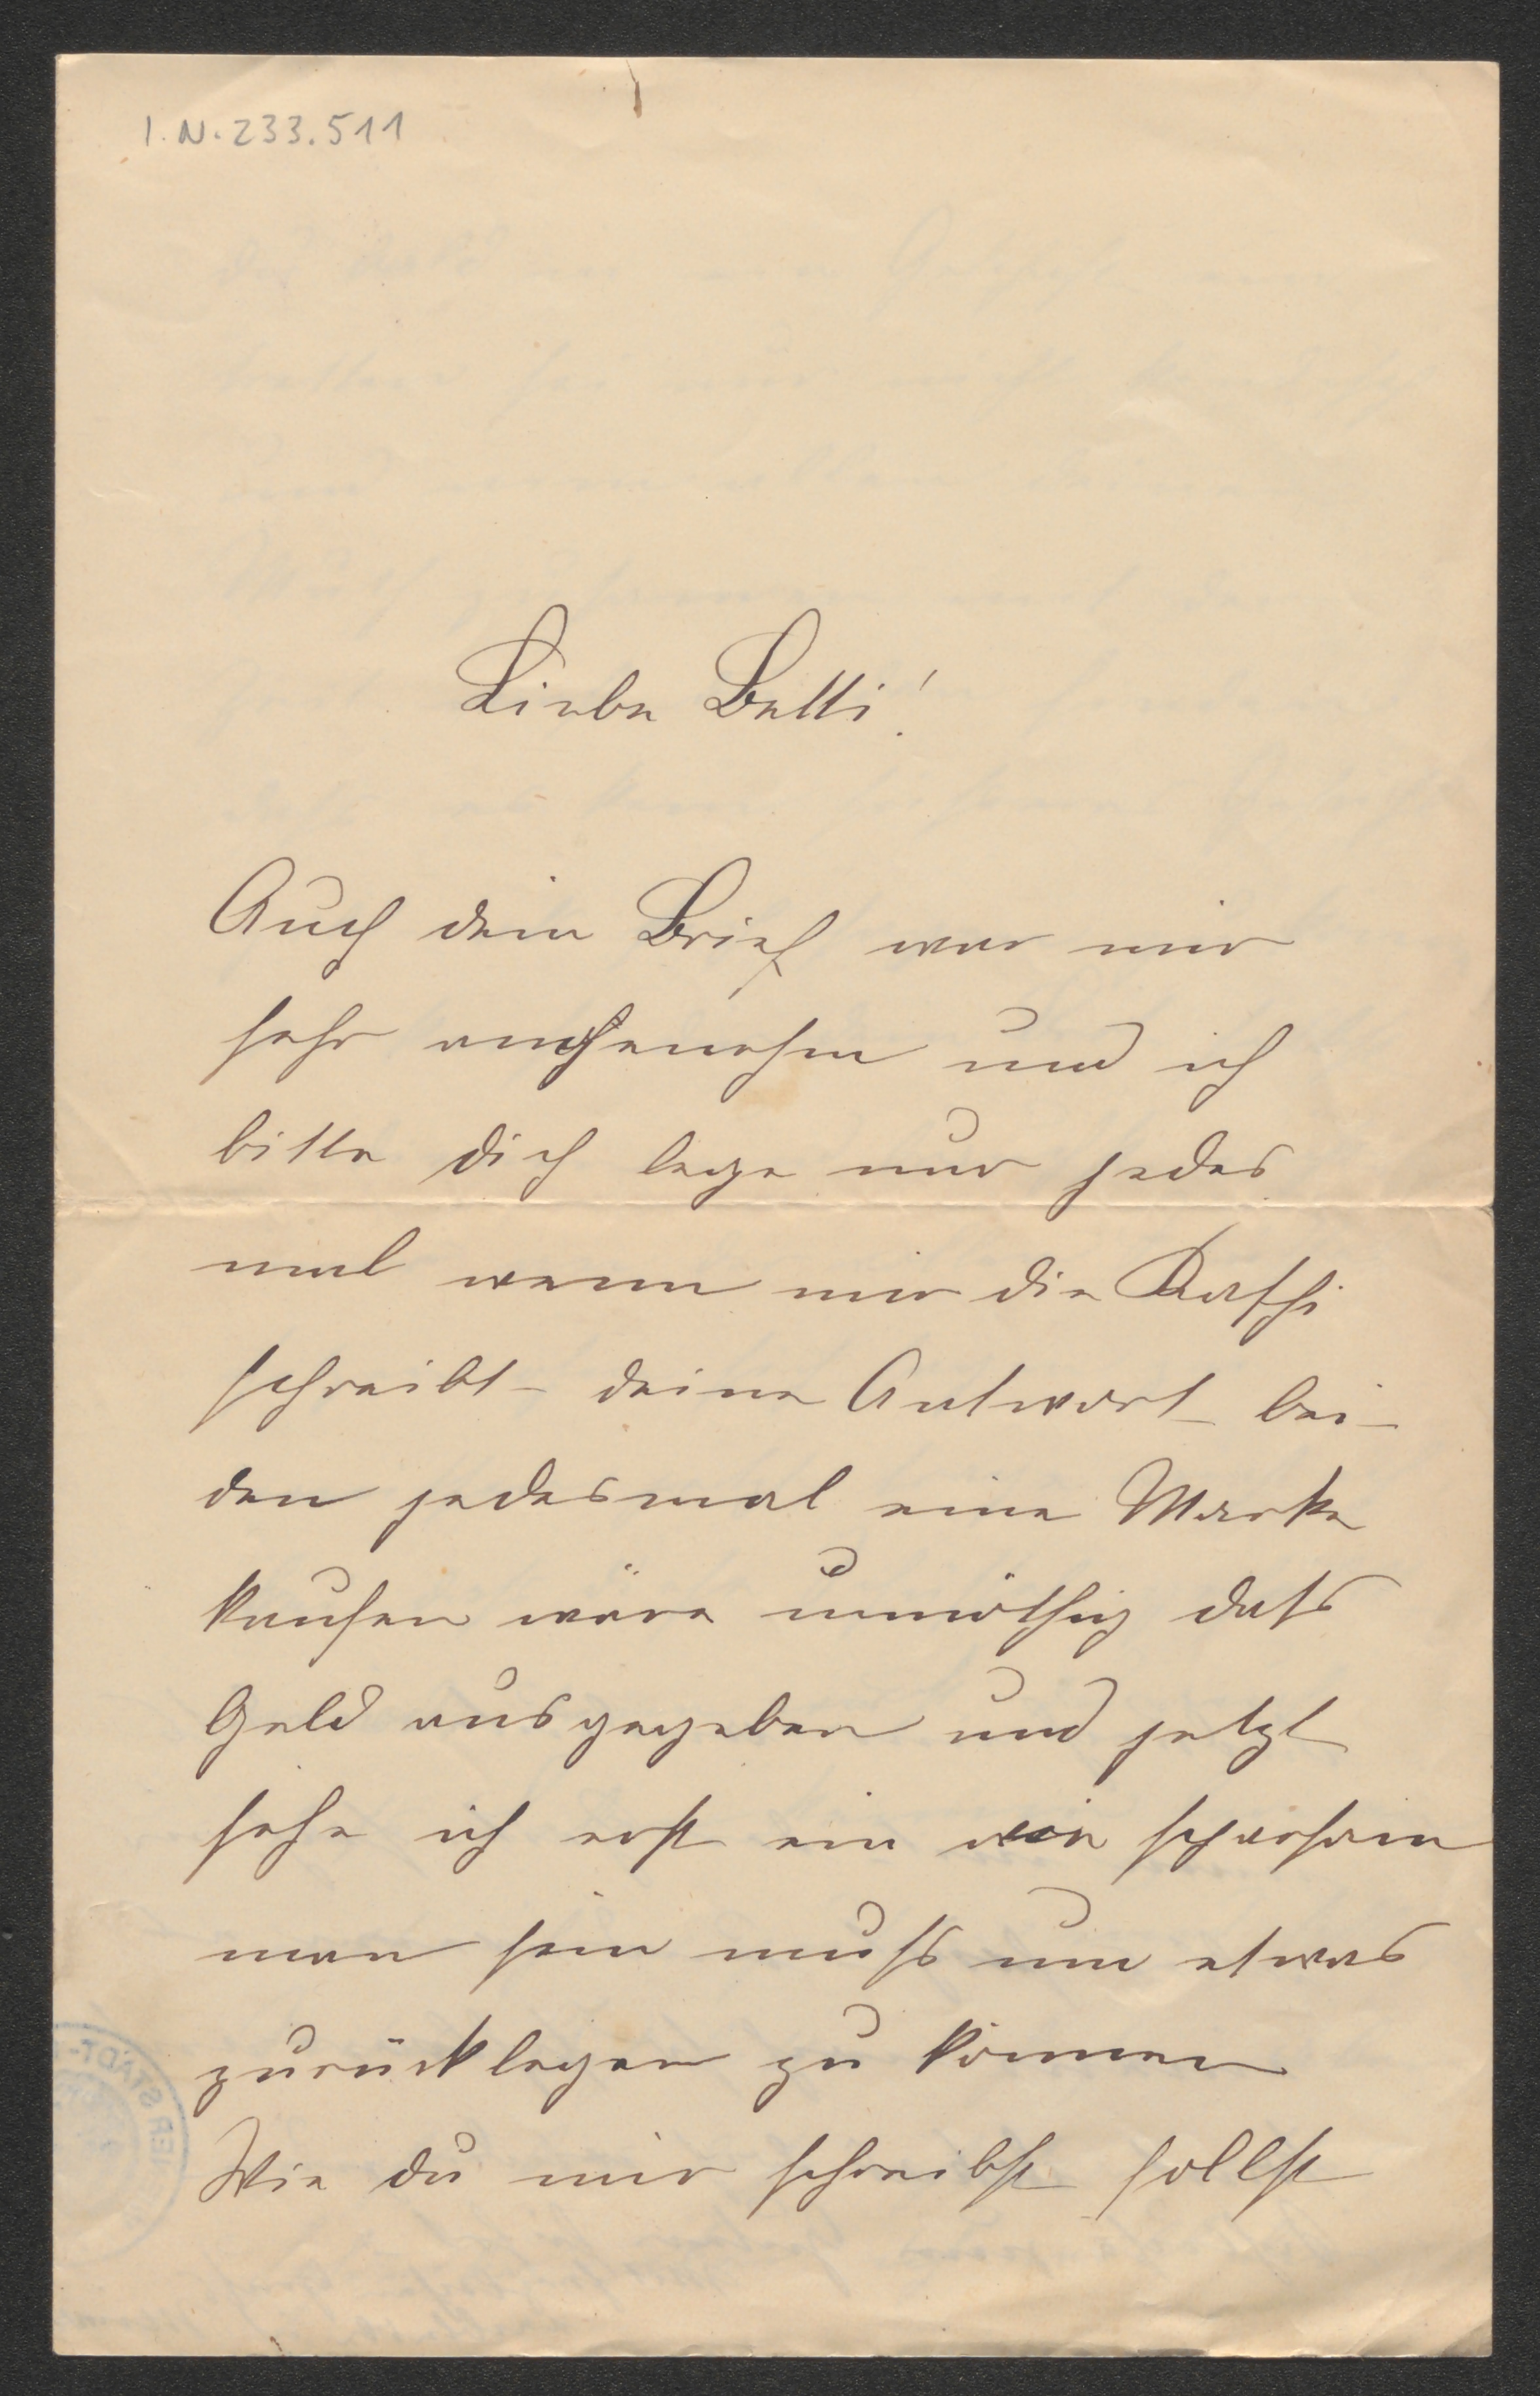 I.N. 233.511
Liebe Betti!
Auch dein Brief war mir
sehr angenehm und ich
bitte dich lege nur jedes
mal wenn mir die Resshi
schreibt deine Antwort bei
den jedesmal eine Marke
kaufen wäre unnöthig dass
Geld ausgegeben und jetzt
sehe ich erst ein wie sparsam
man sein muss um etwas
zurücklegen zu können
Wie du mir schreibst sollst